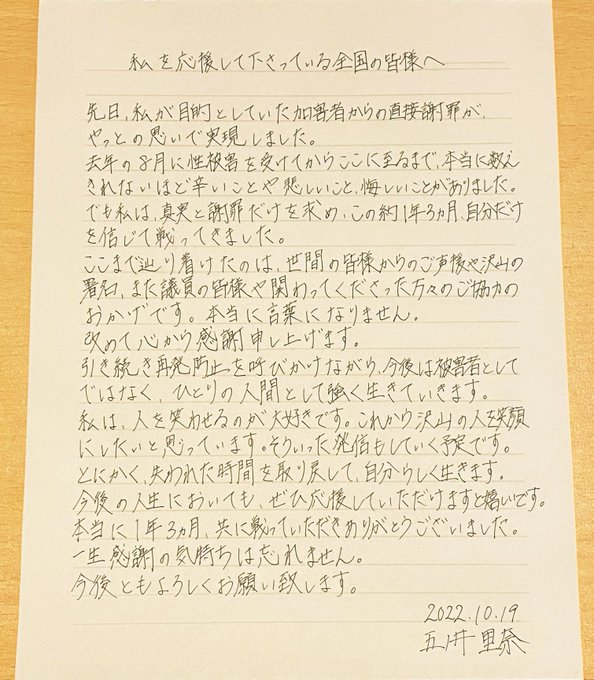 私を応援して下さっている全国の皆様へ
先日、私が目的としていた加害者からの直接謝罪が、
やっとの思いで実現しました。
去年の8月に性被害を受けてからここに至るまで、本当に数え
きれないほど辛いことや悲しいこと、悔しいことがありました。
でも私は、真実と謝罪だけを求め、この約1年3ヵ月、自分だけ
を信じて戦ってきました。
ここまで辿り着けたのは、世間の皆様からのご声援や沢山の
署名、また議員の皆様や関わってくださった方々のご協力の
おかげです。本当に言葉になりません。
改めて心から感謝申し上げます。
引き続き再発防止を呼びかけながら、今後は被害者として
ではなく、ひとりの人間として強く生きていきます。
私は、人を笑わせるのが大好きです。これから沢山の人を笑顔
にしたいと思っています。そういった発信もしていく予定です。
とにかく、失われた時間を取り戻して、自分らしく生きます。
今後の人生においても、ぜひ応援していただけますと嬉しいです。
本当に1年3ヵ月、共に戦っていただきありがとうございました。
一生感謝の気持ちは忘れません。
今後ともよろしくお願い致します。
2022.10.19
五ノ井里奈